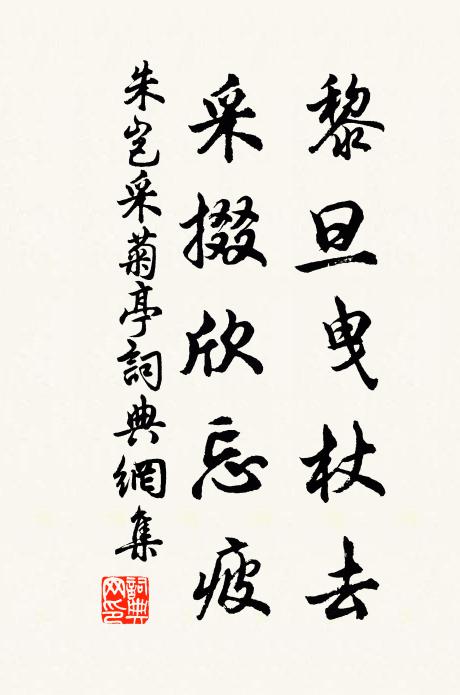 黎旦曳杖去
采掇欣忘疲
朱岂采菊亭詞典網集
詞典网印